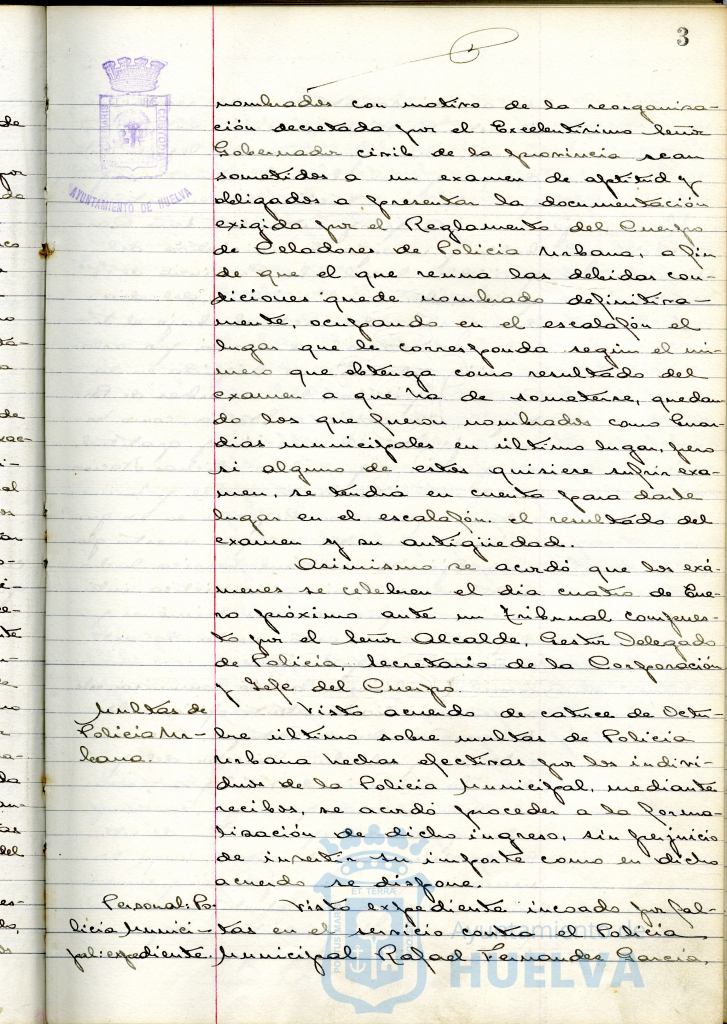 3
AYUNTAMIENTO DE HUELVA
nombrados con motivo de la reorganiza-
ción decretada por el Excelentísimo Señor
Gobernador civil de la provincia sean
sometidos a un examen de aptitud y
obligados a presentar la documentación
exigida por el Reglamento del Cuerpo
de Celadores de Policia Urbana, a fin
de que el que reuna las debidas con-
diciones quede nombrado definitiva-
mente, ocupando en el escalafón el
lugar que le corresponda según el nú-
mero que obtenga como resultado del
examen a que ha de someterse, quedan-
do los que fueron nombrados como Guar-
dias municipales en último lugar, pero
si alguno de estos quisiere sufrir exa-
men, se tendrá en cuenta para darle
lugar en el escalafón, el resultado del
examen y su antigüedad.
Asimismo se acordó que los exá-
menes se celebren el día cuatro de Ene-
ro próximo ante un Tribunal compues-
to por el Señor Alcalde, Gestor Delegado
de Policia, Secretario de la Corporación
y Jefe del Cuerpo.
Multas de
Policia Ur-
bana.
Visto acuerdo de catorce de Octu-
bre último sobre multas de Policia
Urbana hechas efectivas por los indivi-
duos de la Policia Municipal, mediante
recibos, se acordó proceder a la forma-
lización de dicho ingreso, sin prejuicio
de invertir su importe como en dicho
acuerdo se dispone.
Personal: Po-
licia Munici-
pal: expediente.
Visto expediente incoado por fal-
tas en el servicio contra el Policia
Municipal Rafael Fernandez García,
Ayuntamiento de
HUELVA